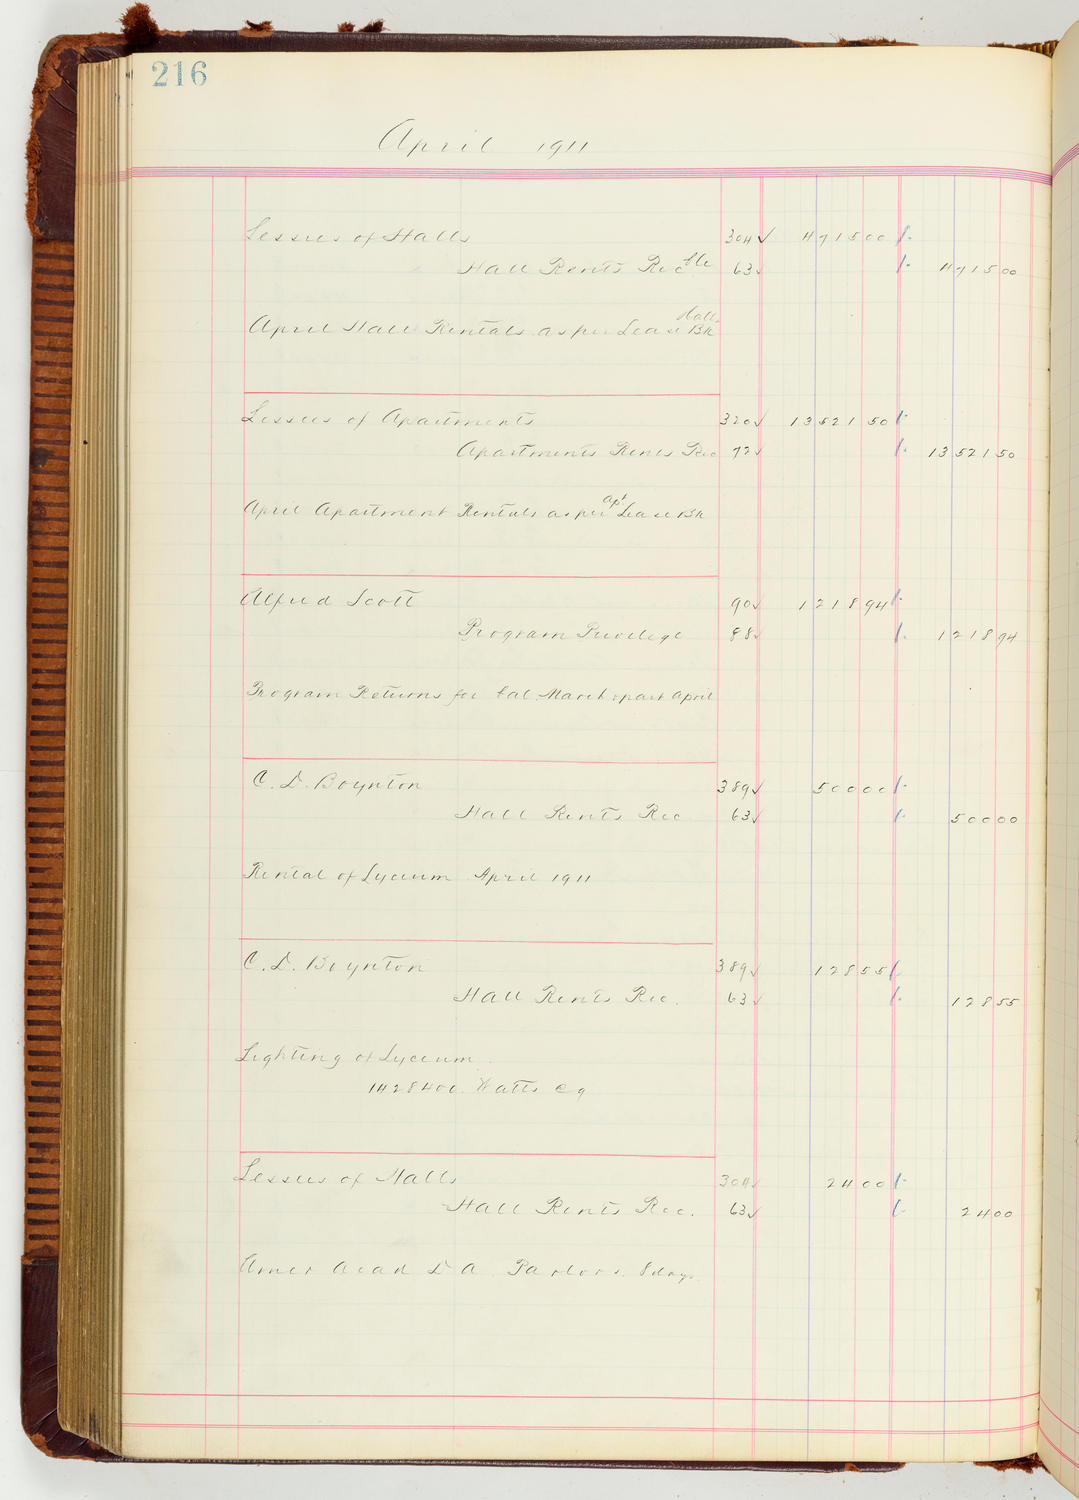 216
April 1911
Lessees of Halls 304 ✓ 4715 00
Hall Rents Recble 63 ✓ 4715 00
April Hall Rentals as per Hall Lease Bk
Lessees of Apartments 320 ✓ 13521 50
Apartments Rents Rec 72 ✓ 13521 50
April Apartment Rentals as per Apt Lease Bk
Alfred Scott 90 ✓ 1218 94
Program Privilege 88 ✓ 1218 94
Program Returns for bal. March & part April
C. D. Boynton 389 ✓ 500 00
Hall Rents Rec 63 ✓ 500 00
Rental of Lyceum April 1911
C. D. Boynton 389 ✓ 128 55
Hall Rents Rec. 63 ✓ 128 55
Lighting of Lyceum
1428400 Watts @ 9
Lessees of Halls 304 ✓ 24 00
Hall Rents Rec. 63 ✓ 24 00
Amer Acad D A Parlors. 8 days